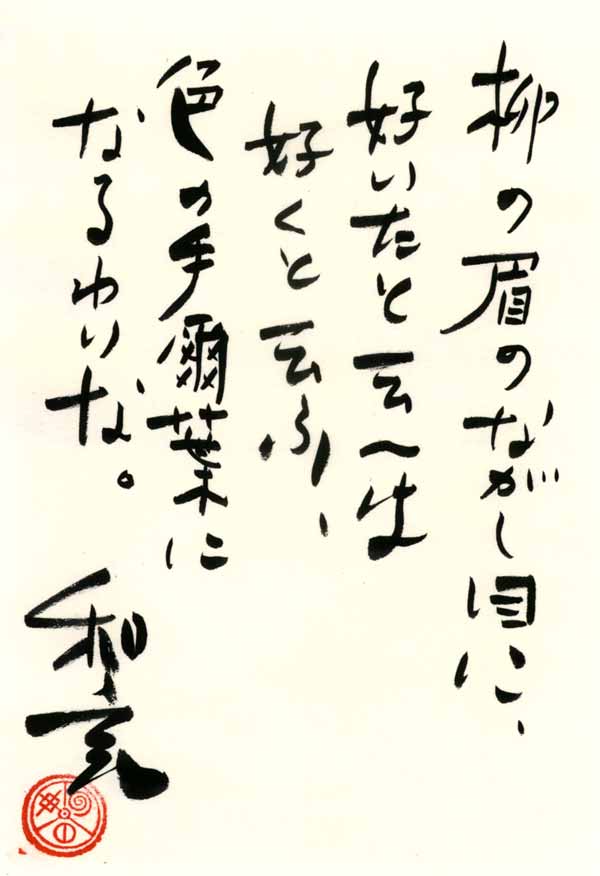 柳の眉のながし目に、
好いたと云へば
好くと云ふ、
色の手爾葉に
なるわいな。